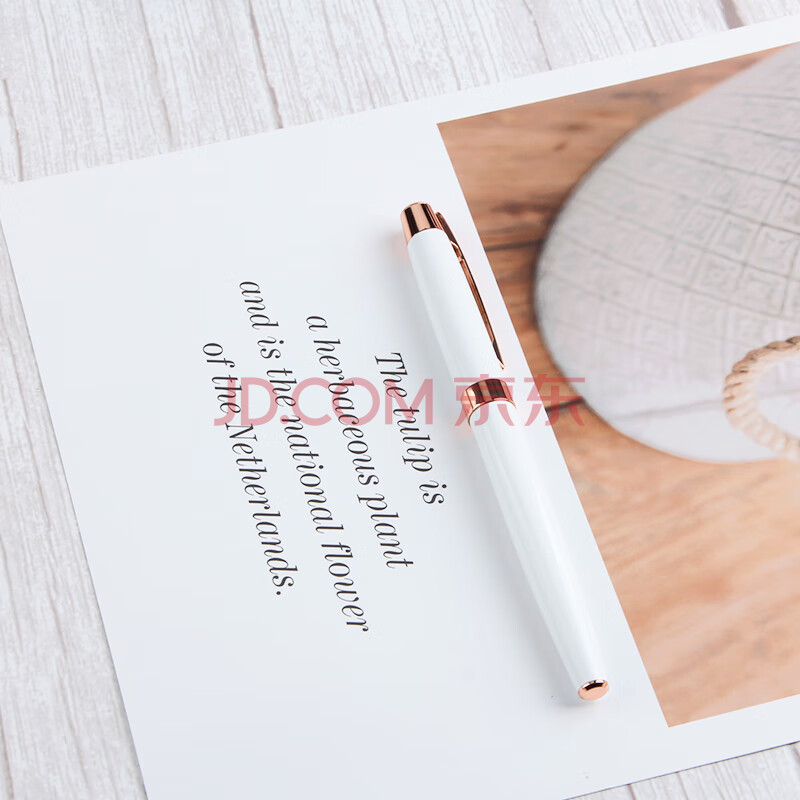 The tulip is
a herbaceous plant
and is the national flower
of the Netherlands.
JD.COM 京东